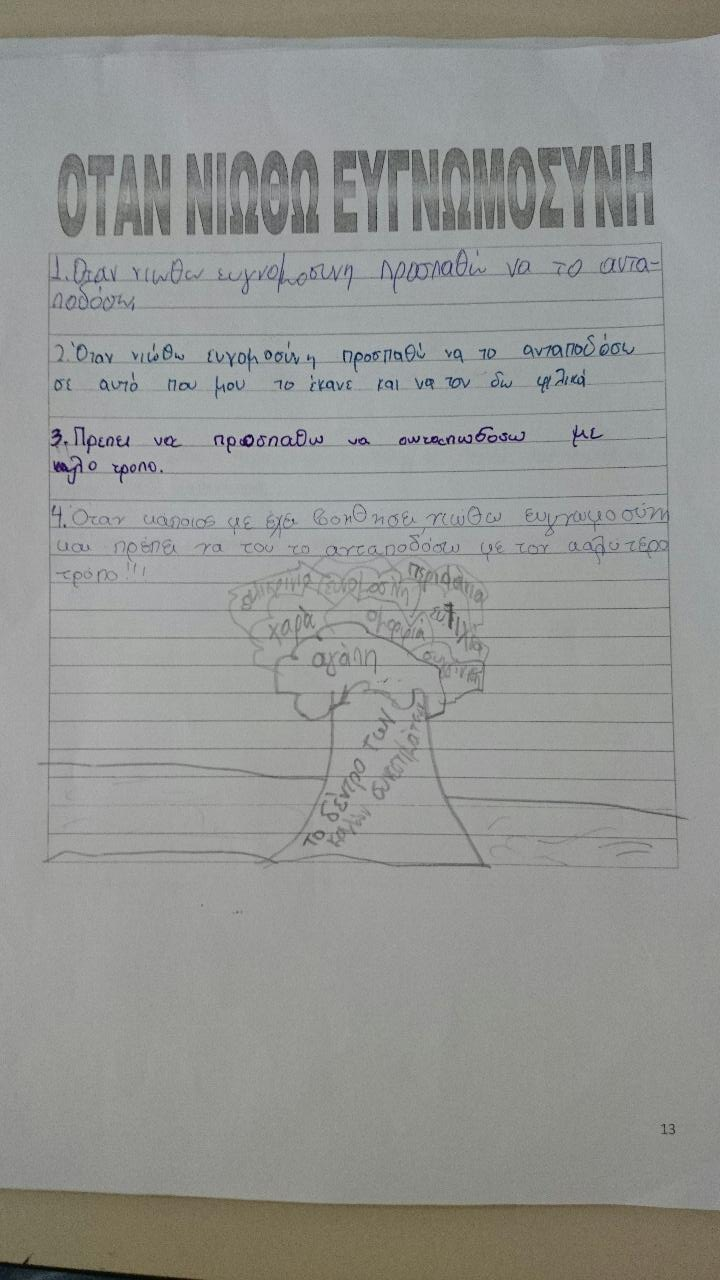 ΟΤΑΝ ΝΙΩΘΩ ΕΥΓΝΩΜΟΣΥΝΗ
1. Οταν νιωθω ευγνομοσυνη προσπαθώ να το αντα-
ποδόσω
2. Όταν νιώθω ευγομοσύνη προσπαθώ να το ανταποδόσω
σε αυτό που μου το έκανε και να τον δω φιλικά
3. Πρεπει να προσπαθω να με
καλο τροπο.
4. Οταν καποιος με έχει βοηθησει, νιωθω ευγνωμοσύνη
και πρέπει να του το ανταποδόσω με τον καλύτερο
τρόπο!!!
ευγνομοσίνη περιφάνια
χαρά ομορφιά ευτιχία
αγάπη
το δέντρο των
καλών συνεσιμάτων
13